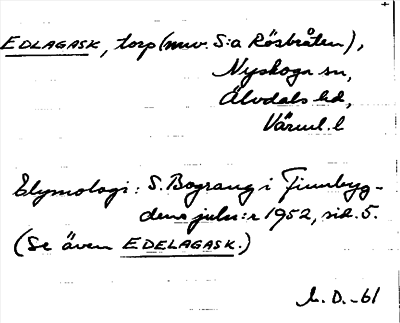 EDLAGASK, torp (nuv. S:a Rösbråten),
Nyskoga sn,
Älvdals hd,
Värml. l
Etymologi: S. Bograng i Finnbyg-
dens julnr 1952, sid. 5.
(Se även EDELAGASK.)
L. D. -61